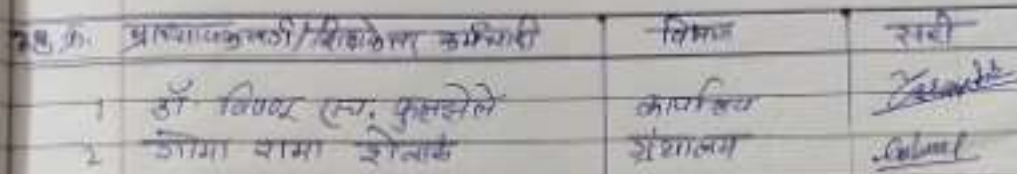 अ.क्र. प्राध्यापकवृंद/शिक्षकेतर कर्मचारी विभाग सही
1 डॉ. विजय एच. फुलझेले कार्यालय
2 गोमा रामा शेलोके ग्रंथालय